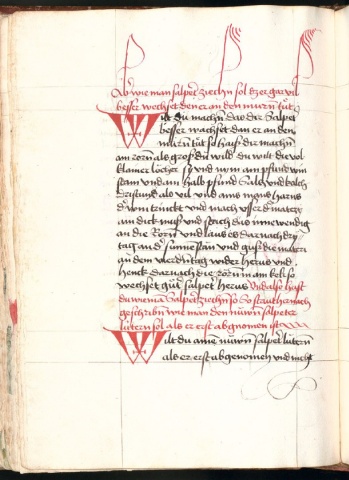 wie man salpet ziechn sol d er gar vil
besser wechset den er an den murn tut
Wilt du machn das der Salpet
besser wachset dan er an den
murn tut so haiss dir machn
ain rorn als gross du wild du wilt die vol
klainer locher sy und nym ain pfund wein
stain und ain halb pfund Saltz und kalch
als vil und ains mans harns
und mach usser d matery
ain dick muss und streich das innwendig
an die Rorn und laus es darnach dry
tag an d sunne stan und
an dem vierden tag wider herus und
henck darnach die rorn in ain
wechset gut salpet herus Und also hast
du wie man Salpet ziechn so Stat hernach
geschribn wie man den nuwen salpeter
lutern sol als er erst abgnomen ist
Wilt du aine nuwen salpet lutern
als er erst abgenomen und nicht